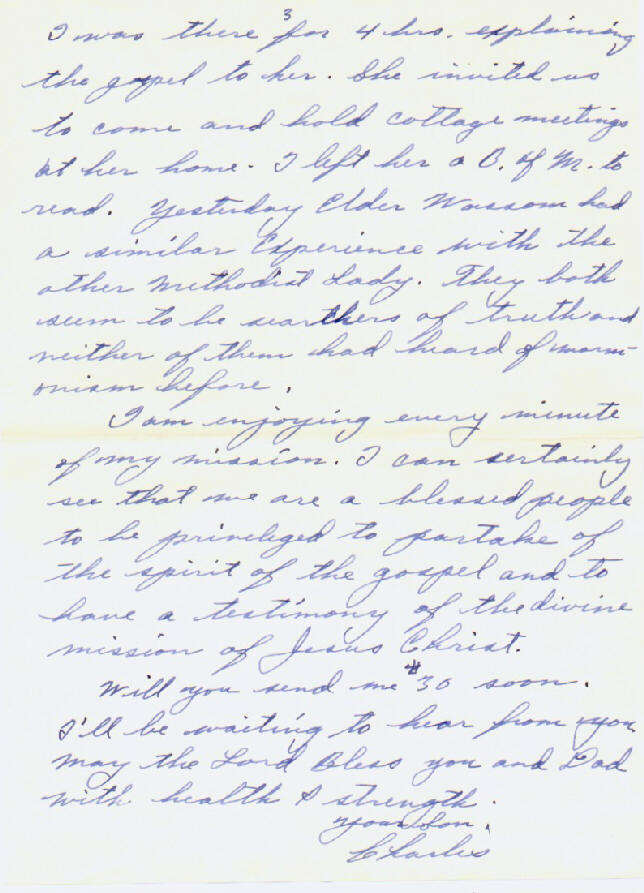 3
I was there for 4 hrs. explaining
the gospel to her. She invited us
to come and hold cottage meetings
at her home. I left her a B. of M. to
read. Yesterday Elder Wassom had
a similar Experience with the
other Methodist Lady. They both
seem to be searchers of truth and
neither of them had heard of morm-
onism before.
I am enjoying every minute
of my mission. I can sertainly
see that we are a blessed people
to be privileged to partake of
the spirit of the gospel and to
have a testimony of the divine
mission of Jesus Christ.
Will you send me $30 soon.
I'll be waiting to hear from you.
May the Lord Bless you and Dad
with health & strength.
Your Son,
Charles